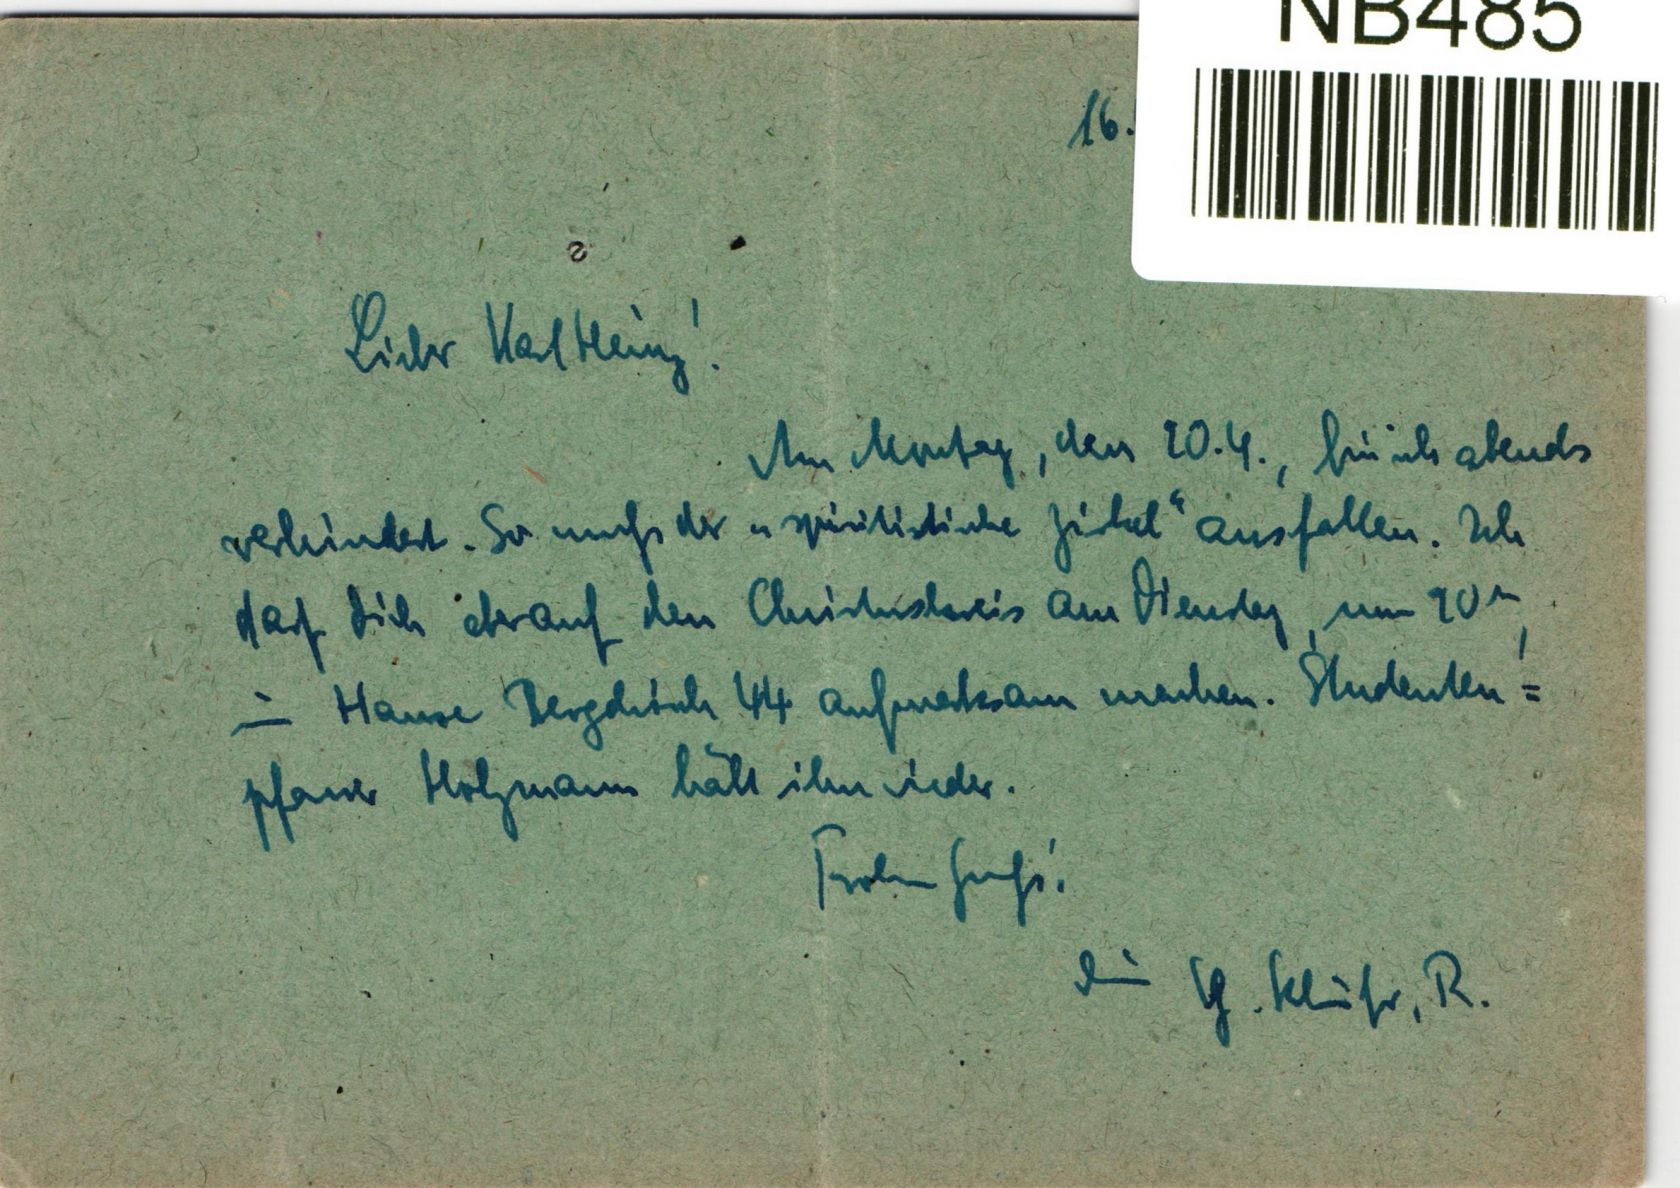 NB485
16.
Lieber Karl Heinz!
Am Montag, den 20.4., bin ich abends
verhindert. So muß der „spiritistische Zirkel“ ausfallen. Ich
darf Dich aber auf den Christuskreis am Dienstag, um 20ʰ,
im Hause 44 aufmerksam machen. Studenten=
pfarrer Holzmann hält ihn wieder.
Frohen Gruß!
Dein R.